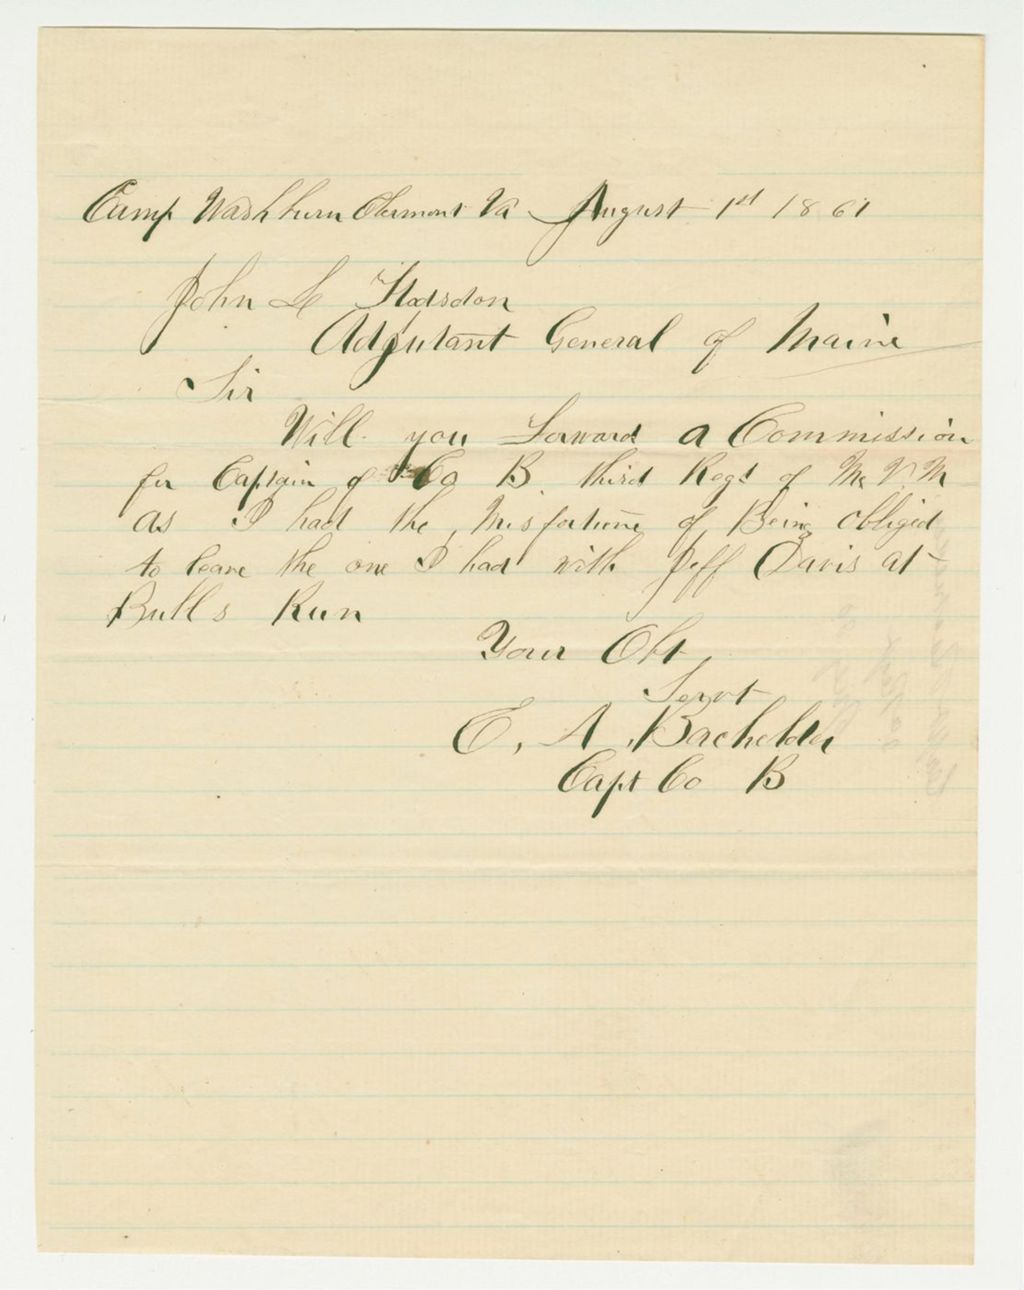 Camp Washburn Clermont Va August 1st 1861
John L Hodsdon
Adjutant General of Maine
Sir
Will you Forward a Commission
for Captain of Co B third Regt of Me V M
as I had the Misfortune of Being obliged
to leave the one I had with Jeff Davis at
Bulls Run
Your Obt
Servt
E. A. Bachelder
Capt Co B